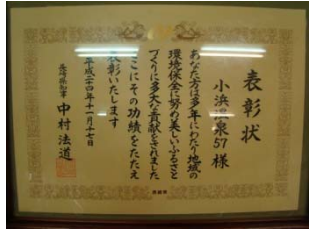 表彰状
小浜温泉57様
あなた方は多年にわたり地域の
環境保全に努め美しいふるさと
づくりに多大な貢献をされました
ここにその功績をたたえ
表彰いたします
平成二十四年十一月十七日
長崎県知事 中村法道